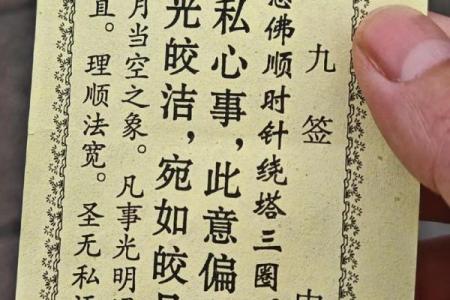 九签
佛顺时针绕塔三圈
私心事，此意偏
光皎洁，宛如皎
月当空之象。凡事光明
直。理顺法宽。圣无私